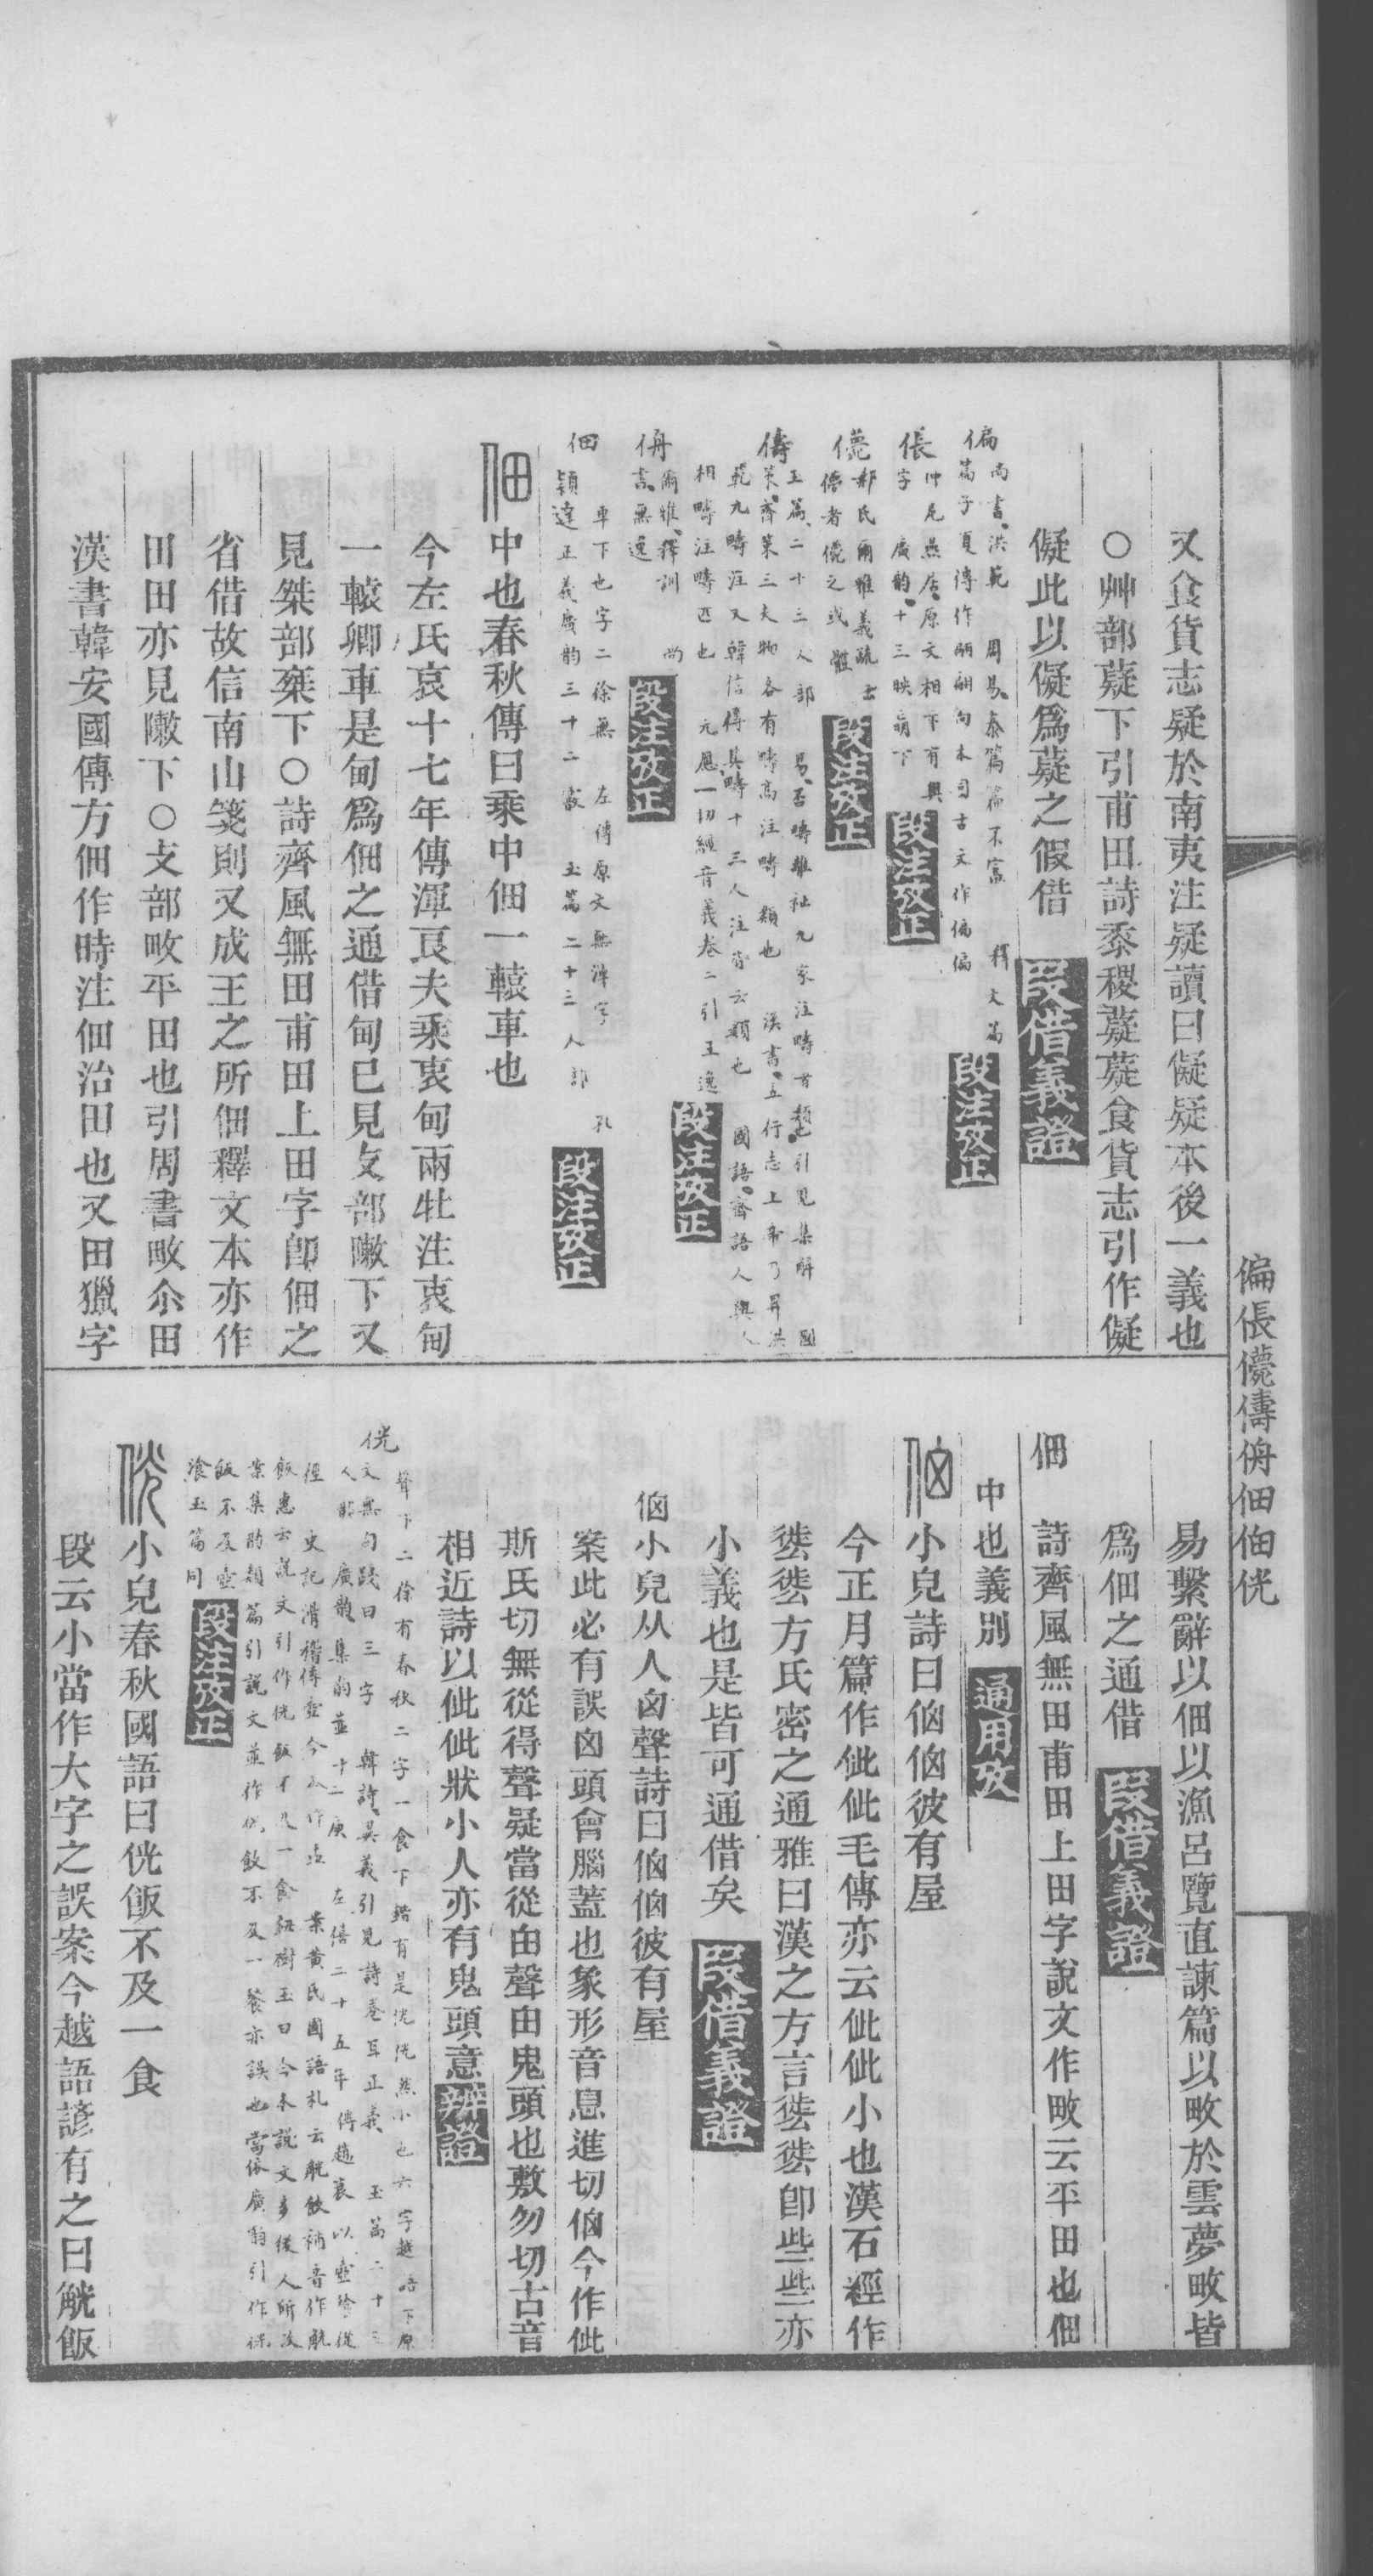 又食貨志疑於南夷注疑讀曰儗疑本後一義也
〇艸部薿下引甫田詩黍稷薿薿食貨志引作儗
儗此以儗爲薿之假借 段借義證
偏 尚書、洪範 周易、泰篇篇不富 釋文篇
篇子夏傳作翩翩向本同古文作偏偏 段注攷正
倀 仲尼燕居、原文相下有與
字 廣韵、十三映 段注攷正
儷 郝氏爾雅義疏云
段注攷正
儔 玉篇、二十三人部 易、否疇離祉九家注疇者類也引見集解 國
策、齊策三夫物各有疇高注疇 類也 漢書、五行志上 洪
範九疇注 又韓信傳其疇十三人注 云類也 國語、齊語人與人
相疇注疇匹也 元應一切經音義卷二引王逸 段注攷正
侜 爾雅、釋訓 尚
書、無逸 段注攷正
佃 車下也字二徐無 左傳原文無渾字 孔
穎達正義廣韵三十二霰 玉篇二十三人部 段注攷正
佃 中也春秋傳曰乘中佃一轅車也
今左氏哀十七年傳渾良夫乘衷甸兩牡注衷甸
一轅卿車是甸爲佃之通借甸已見攴部敶下又
見桀部椉下〇詩齊風無田甫田上田字卽佃之
省借故信南山箋則又成王之所佃釋文本亦作
田田亦見敶下〇攴部畋平田也引周書畋尒田
漢書韓安國傳方佃作時注佃治田也又田獵字
易繫辭以佃以漁呂覽直諫篇以畋於雲夢畋皆
爲佃之通借 段借義證
佃 詩齊風無田甫田上田字說文作畋云平田也佃
中也義別 通用攷
㑄 小皃詩曰㑄㑄彼有屋
今正月篇作仳仳毛傳亦云仳仳小也漢石經作
㲋㲋方氏密之通雅曰漢之方言卽些些亦
小義也是皆可通借矣 段借義證
㑄小皃从人囟聲詩曰㑄㑄彼有屋
案此必有誤囟頭會腦蓋也象形音息進切㑄今作仳
斯氏切無從得聲疑當從甶聲甶鬼頭也敷勿切古音
相近詩以仳仳狀小人亦有鬼頭意 辨證
侊 聲下二徐有春秋二字一食下鍇有是侊侊然小也六字越語下原
文無句踐曰三字 韓詩、異義引見詩卷耳正義 玉篇二十三
人部 廣韵集韵並十二庚 左僖二十五年傳趙衰以壺飱從
徑 史記滑稽傳壺 案黃氏國語札云觥飲補音作觥
飯惠云說文引作侊飯不及一食鈕樹玉曰今本說文多後人所改
案集韵類篇引說文並作侊飲不及一餐亦誤也當依廣韵引作侊
飯不及壺
飱玉篇同 段注攷正
侊 小皃春秋國語曰侊飯不及一食
段云小當作大字之誤案今越語諺有之曰觥飯
偏倀儷儔侜佃㑄侊